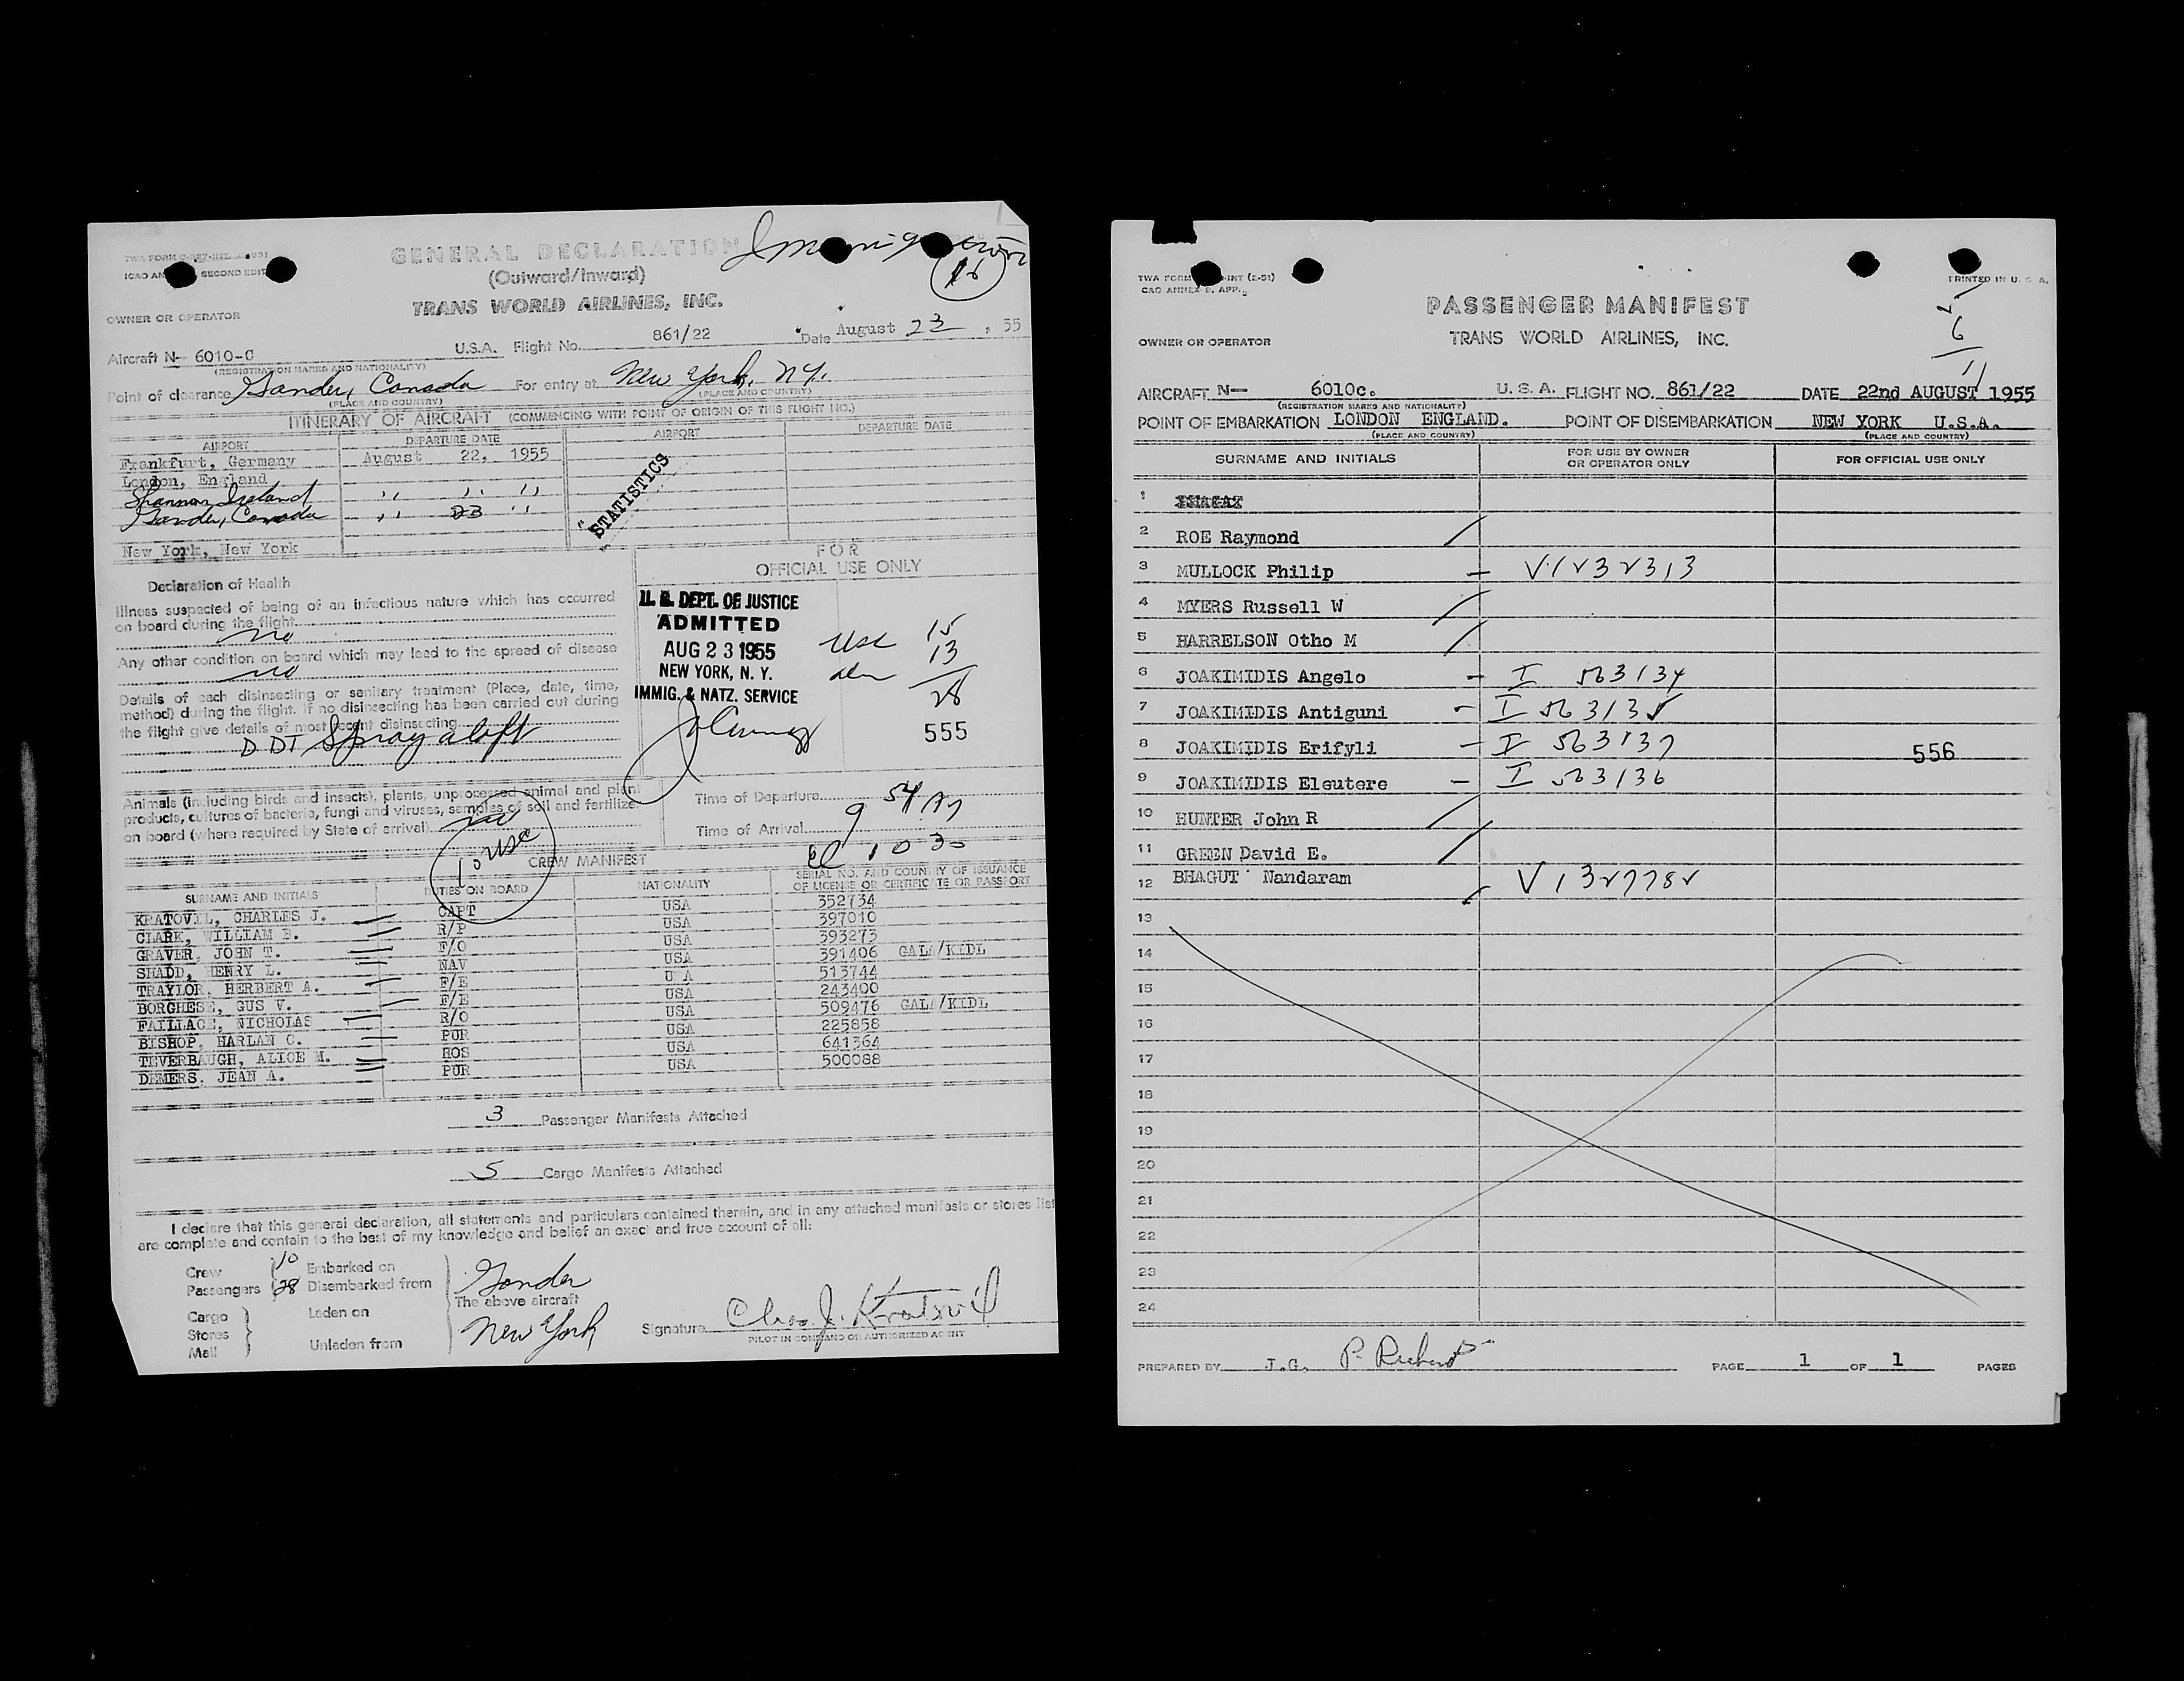 GENERAL DECLARATION
Immigration
(Outward/Inward)
16
TRANS WORLD AIRLINES, INC.
OWNER OR OPERATOR
Aircraft N- 6010-C U.S.A. Flight No. 861/22 Date August 23, 55
(REGISTRATION MARKS AND NATIONALITY)
Point of clearance Gander, Canada For entry at New York, NY.
(PLACE AND COUNTRY) (PLACE AND COUNTRY)
ITINERARY OF AIRCRAFT (COMMENCING WITH POINT OF ORIGIN OF THIS FLIGHT NO.)
AIRPORT DEPARTURE DATE AIRPORT DEPARTURE DATE
Frankfurt, Germany August 22, 1955
London, England
Shannon Ireland " " "
Gander, Canada " 23 "
New York, New York
"STATISTICS"
Declaration of Health
Illness suspected of being of an infectious nature which has occurred
on board during the flight. no
Any other condition on board which may lead to the spread of disease
no
Details of each disinsecting or sanitary treatment (Place, date, time,
method) during the flight. If no disinsecting has been carried out during
the flight give details of most recent disinsecting.
DDT Spray aloft
Animals (including birds and insects), plants, unprocessed animal and plant
products, cultures of bacteria, fungi and viruses, samples of soil and fertilize
on board (where required by State of arrival) no
FOR
OFFICIAL USE ONLY
U. S. DEPT. OF JUSTICE
ADMITTED
AUG 23 1955
NEW YORK, N. Y.
IMMIG. & NATZ. SERVICE
USC 15
aln 13
28
555
Time of Departure
Time of Arrival 9 54 
10 30
10 USC
CREW MANIFEST
SURNAME AND INITIALS DUTIES ON BOARD NATIONALITY SERIAL NO. AND COUNTRY OF ISSUANCE
OF LICENSE OR CERTIFICATE OR PASSPORT
KRATOVIL, CHARLES J. CAPT USA 352734
CLARK, WILLIAM B. R/P USA 397010
GRAVER, JOHN T. F/O USA 393273
SHADD, HENRY L. NAV USA 391406 GALA/KIDL
TRAYLOR, HERBERT A. F/E U A 513744
BORGHESE, GUS V. F/E USA 243400
FAILLACE, NICHOLAS R/O USA 509476 GALA/KIDL
BISHOP, HARLAN C. PUR USA 225858
TEVERBAUGH, ALICE M. HOS USA 641364
DEMERS, JEAN A. PUR USA 500088
3 Passenger Manifests Attached
5 Cargo Manifests Attached
I declare that this general declaration, all statements and particulars contained therein, and in any attached manifests or stores list
are complete and contain to the best of my knowledge and belief an exact and true account of all:
Crew 10 Embarked on
Passengers 28 Disembarked from Gander
Cargo Laden on The above aircraft
Stores
Mail Unladen from New York
Signature Chas J. Kratovil
PILOT IN COMMAND OR AUTHORIZED AGENT
PRINTED IN U. S. A.
PASSENGER MANIFEST
OWNER OR OPERATOR TRANS WORLD AIRLINES, INC.
5
6
11
AIRCRAFT N- 6010c. U. S. A. FLIGHT NO. 861/22 DATE 22nd AUGUST 1955
(REGISTRATION MARKS AND NATIONALITY)
POINT OF EMBARKATION LONDON ENGLAND. POINT OF DISEMBARKATION NEW YORK U.S.A.
(PLACE AND COUNTRY) (PLACE AND COUNTRY)
SURNAME AND INITIALS FOR USE BY OWNER
OR OPERATOR ONLY FOR OFFICIAL USE ONLY
1
2 ROE Raymond
3 MULLOCK Philip - V1232313
4 MYERS Russell W
5 HARRELSON Otho M
6 JOAKIMIDIS Angelo - I 563134
7 JOAKIMIDIS Antiguni - I 563135
8 JOAKIMIDIS Erifyli - I 563137
556
9 JOAKIMIDIS Eleutere - I 563136
10 HUNTER John R
11 GREEN David E.
12 BHAGUT Nandaram V1327782
13
14
15
16
17
18
19
20
21
22
23
24
PREPARED BY J.G. P. Richards PAGE 1 OF 1 PAGES